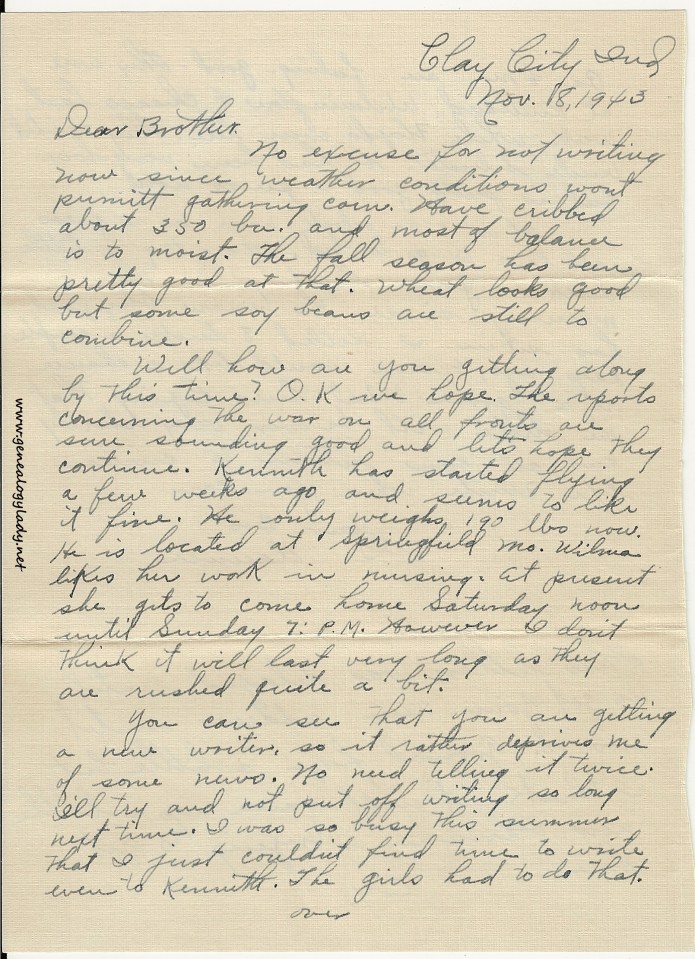 Clay City Ind,
Nov. 18, 1943
Dear Brother.
No excuse for not writing
now since weather conditions wont
pirmitt gathering corn. Have cribbed
about 350 bu. and most of balance
is to moist. The fall season has been
pretty good at that. Wheat looks good
but some soy beans are still to
combine.
Well how are you getting along
by this time? O.K we hope. The reports
concerning the war on all fronts are
sure sounding good and let's hope they
continue. Kennith has started flying
a few weeks ago and seems to like
it fine. He only weighs 190 lbs now.
He is located at Springfield Mo. Wilma
likes her work in nursing. At present
she gets to come home Saturday noon
until Sunday 7: P.M. However I don't
think it will last very long as they
are rushed quite a bit.
You can see that you are getting
a new writer, so it rather deprives me
of some news. No need telling it twice.
I'll try and not put off writing so long
next time. I was so busy this summer
that I just couldn't find time to write
even to Kennith. The girls had to do that.
over
www.genealogylady.net